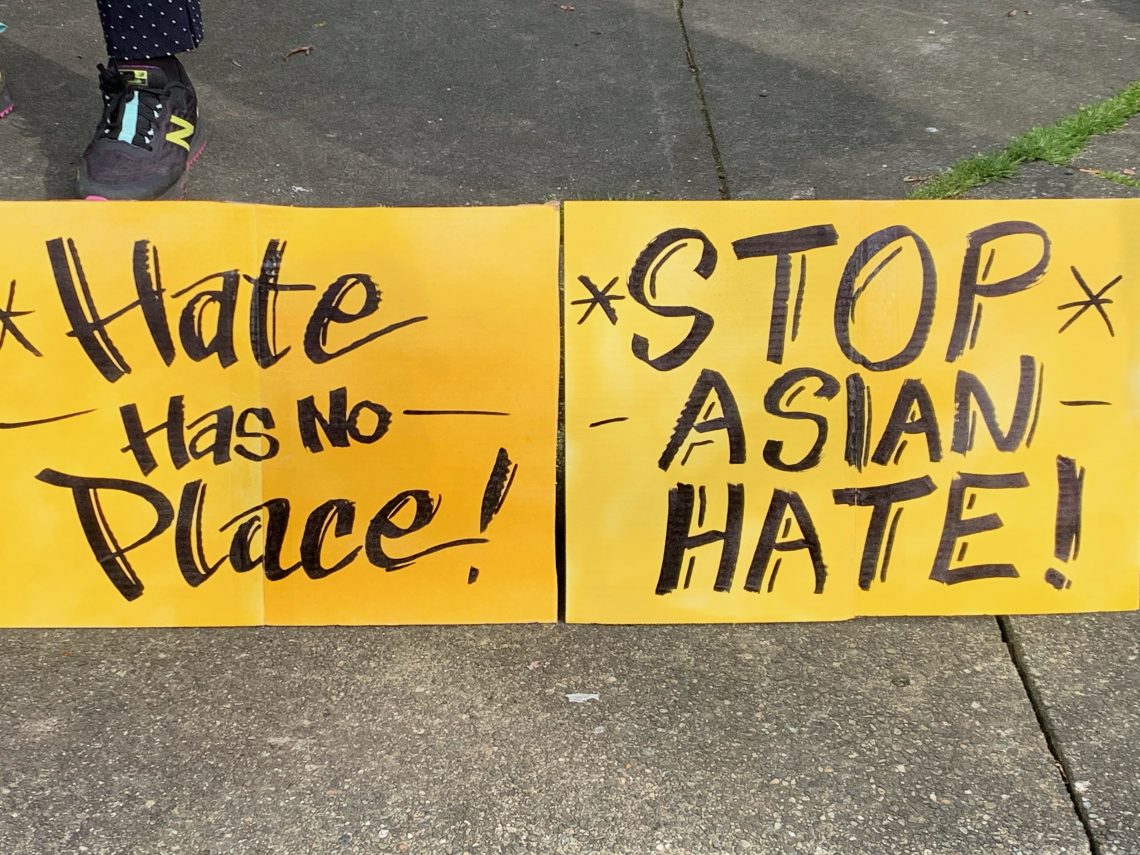 N
* Hate
- Has No -
Place!
* STOP *
- ASIAN -
HATE!